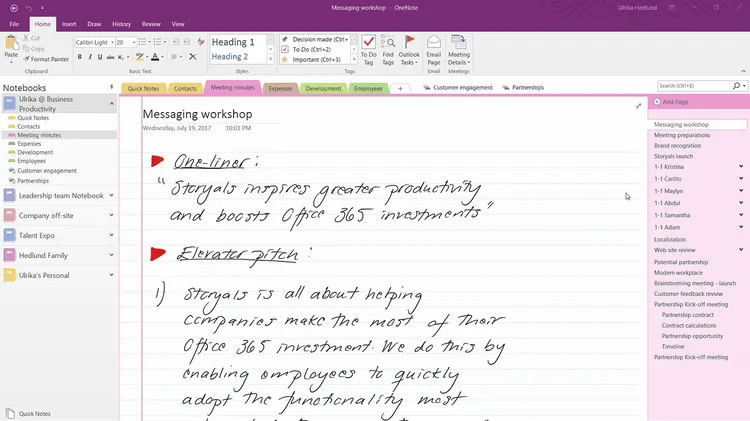 Messaging workshop - OneNote
Ulrika Hedlund
File
Home
Insert
Draw
History
Review
View
Paste
Cut
Copy
Format Painter
Clipboard
Calibri Light
20
Basic Text
Heading 1
Heading 2
Styles
Decision made (Ctrl+
To Do (Ctrl+2)
Important (Ctrl+3)
Tags
To Do
Tag
Find
Tags
Outlook
Tasks
Email
Page
Email
Meeting
Details
Meetings
Notebooks
Ulrika @ Business
Productivity
Quick Notes
Contacts
Meeting minutes
Expenses
Development
Employees
Customer engagement
Partnerships
Leadership team Notebook
Company off-site
Talent Expo
Hedlund Family
Ulrika's Personal
Quick Notes
Quick Notes
Contacts
Meeting minutes
Expenses
Development
Employees
Customer engagement
Partnerships
Search (Ctrl+E)
Messaging workshop
Wednesday, July 19, 2017 10:01 PM
One-liner:
"Storyals inspires greater productivity
and boosts Office 365 investments"
Elevator pitch:
1) Storyals is all about helping
companies make the most of their
Office 365 investment. We do this by
enabling employees to quickly
adopt the functionality most
Add Page
Messaging workshop
Meeting preparations
Brand recognition
Storyals launch
1-1 Kristina
1-1 Carlito
1-1 Maylyn
1-1 Abdul
1-1 Samantha
1-1 Adam
Localization
Web site review
Potential partnership
Modern workplace
Brainstorming meeting - launch
Customer feedback review
Partnership Kick-off meeting
Partnership contract
Contract calculations
Partnership opportunity
Timeline
Partnership Kick-off meeting